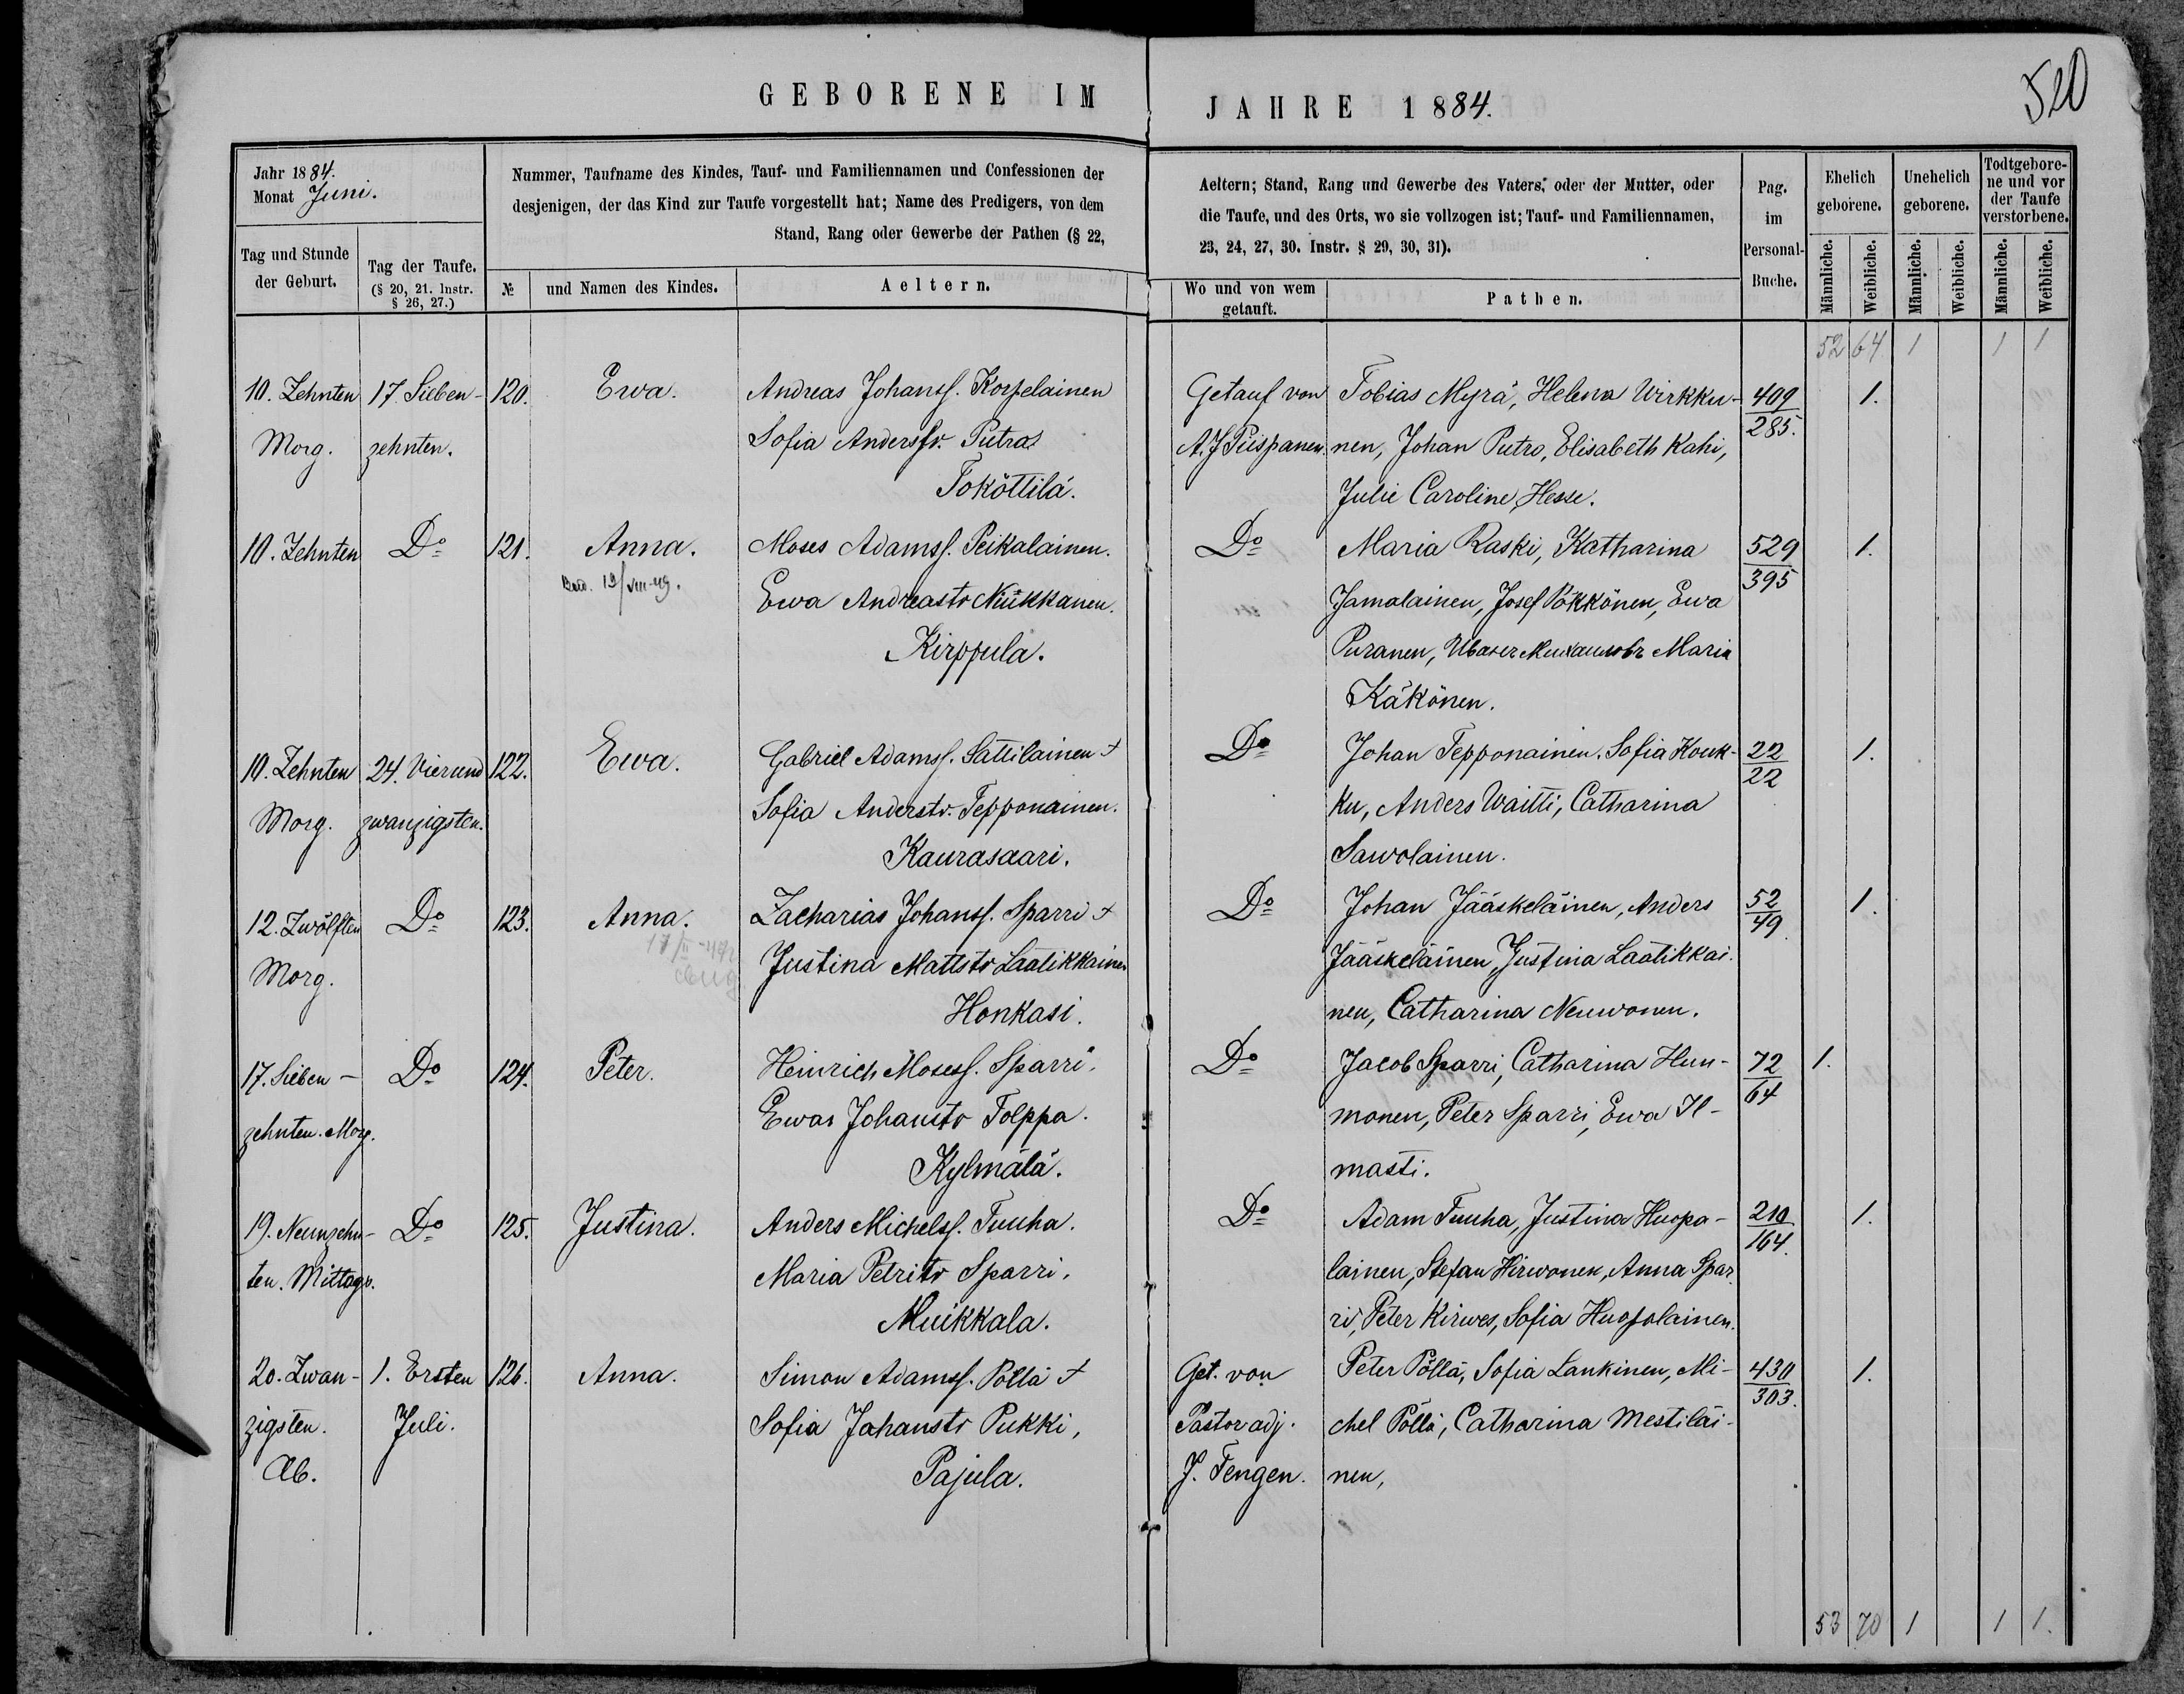 GEBORENE IM JAHRE 1884.
520
Jahr 1884.
Monat Juni.
Tag und Stunde
der Geburt.
Tag der Taufe.
(§ 20, 21. Instr.
§ 26, 27.)
Nummer, Taufname des Kindes, Tauf- und Familiennamen und Confessionen der
desjenigen, der das Kind zur Taufe vorgestellt hat; Name des Predigers, von dem
Stand, Rang oder Gewerbe der Pathen (§ 22,
№
und Namen des Kindes.
Aeltern.
Aeltern; Stand, Rang und Gewerbe des Vaters, oder der Mutter, oder
die Taufe, und des Orts, wo sie vollzogen ist; Tauf- und Familiennamen,
23, 24, 27, 30. Instr. § 29, 30, 31).
Wo und von wem
getauft.
Pathen.
Pag.
im
Personal-
Buche.
Ehelich
geborene.
Unehelich
geborene.
Todtgebore-
ne und vor
der Taufe
verstorbene.
Männliche.
Weibliche.
Männliche.
Weibliche.
Männliche.
Weibliche.
52 64 1 1 1
10. Zehnten 17. Sieben- 120. Ewa. Andreas Johanss. Korpelainen Getauf von Tobias Myrä, Helena Wirkku- 409 1.
Morg. zehnten. Sofia Anderstr. Putra A. J. Piispanen. nen, Johan Putro, Elisabeth Kahi, 285.
Toköttilä. Julie Caroline Hesse.
10. Zehnten Do 121. Anna. Moses Adamss. Peikalainen. Do Maria Raski, Katharina 529 1.
Ewa Andreastr Niukkanen. Jamalainen, Josef Pökkönen, Ewa 395
Kirppula. Puranen, Maria
Käkönen.
10. Zehnten 24. Vierund 122. Ewa. Gabriel Adamss. Sattilainen + Do Johan Tepponainen. Sofia Kouk- 22 1.
Morg. zwanzigsten. Sofia Anderstr. Tepponainen. ku, Anders Waitti, Catharina 22
Kaurasaari. Sawolainen.
12. Zwölften Do 123. Anna. Zacharias Johanss. Sparri + Do Johan Jääskeläinen, Anders 52 1.
Morg. Justina Mattstr Laatikkainen Jääskeläinen, Justina Laatikkai- 49
Honkasi. nen, Catharina Neuwonen.
17. Sieben- Do 124. Peter. Heinrich Mosess. Sparri. Do Jacob Sparri, Catharina Hun- 72 1.
zehnten. Morg. Ewa Johanstr Tolppa. monen, Peter Sparri, Ewa Il- 64
Kylmälä. masti.
19. Neunzehn- Do 125. Justina. Anders Michelss. Tuuha. Do Adam Tuuha, Justina Huopa- 210 1.
ten. Mittags. Maria Petritr Sparri. lainen, Stefan Hirwonen, Anna Spar- 164.
Muikkala. ri, Peter Kirwes, Sofia Huopolainen.
20. Zwan- 1. Ersten 126. Anna. Simon Adamss. Pöllä + Get. von Peter Pöllä, Sofia Lankinen, Mi- 430 1.
zigsten. Juli. Sofia Johanstr Pukki, Pastor adj. chel Pöllä, Catharina Mestiläi- 303.
Ab. Pajula. J. Tengen. nen,
53 70 1 1 1.